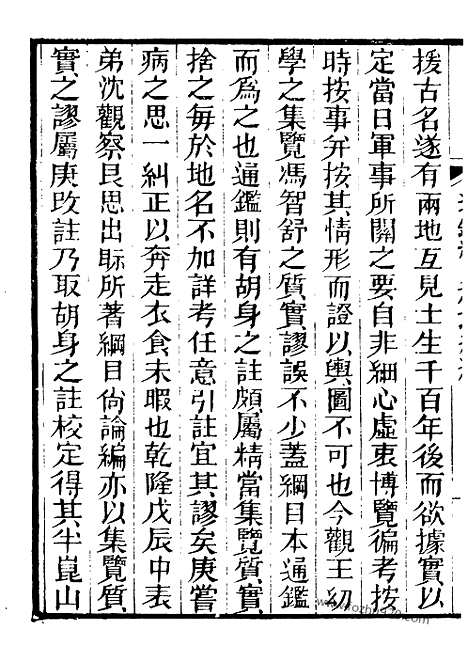 援古名遂有兩地互見士生千百年後而欲據實以
定當日軍事所關之要自非細心虛衷博覽徧考按
時按事并按其情形而證以輿圖不可也今觀王幼
學之集覽馮智舒之質實謬誤不少蓋綱目本通鑑
而爲之也通鑑則有胡身之註頗屬精當集覽質實
捨之每於地名不加詳考任意引註宜其謬矣庚嘗
病之思一糾正以奔走衣食未暇也乾隆戊辰中表
弟沈觀察艮思出眎所著綱目尙論編亦以集覽質
實之謬屬庚攷註乃取胡身之註校定得其半崑山